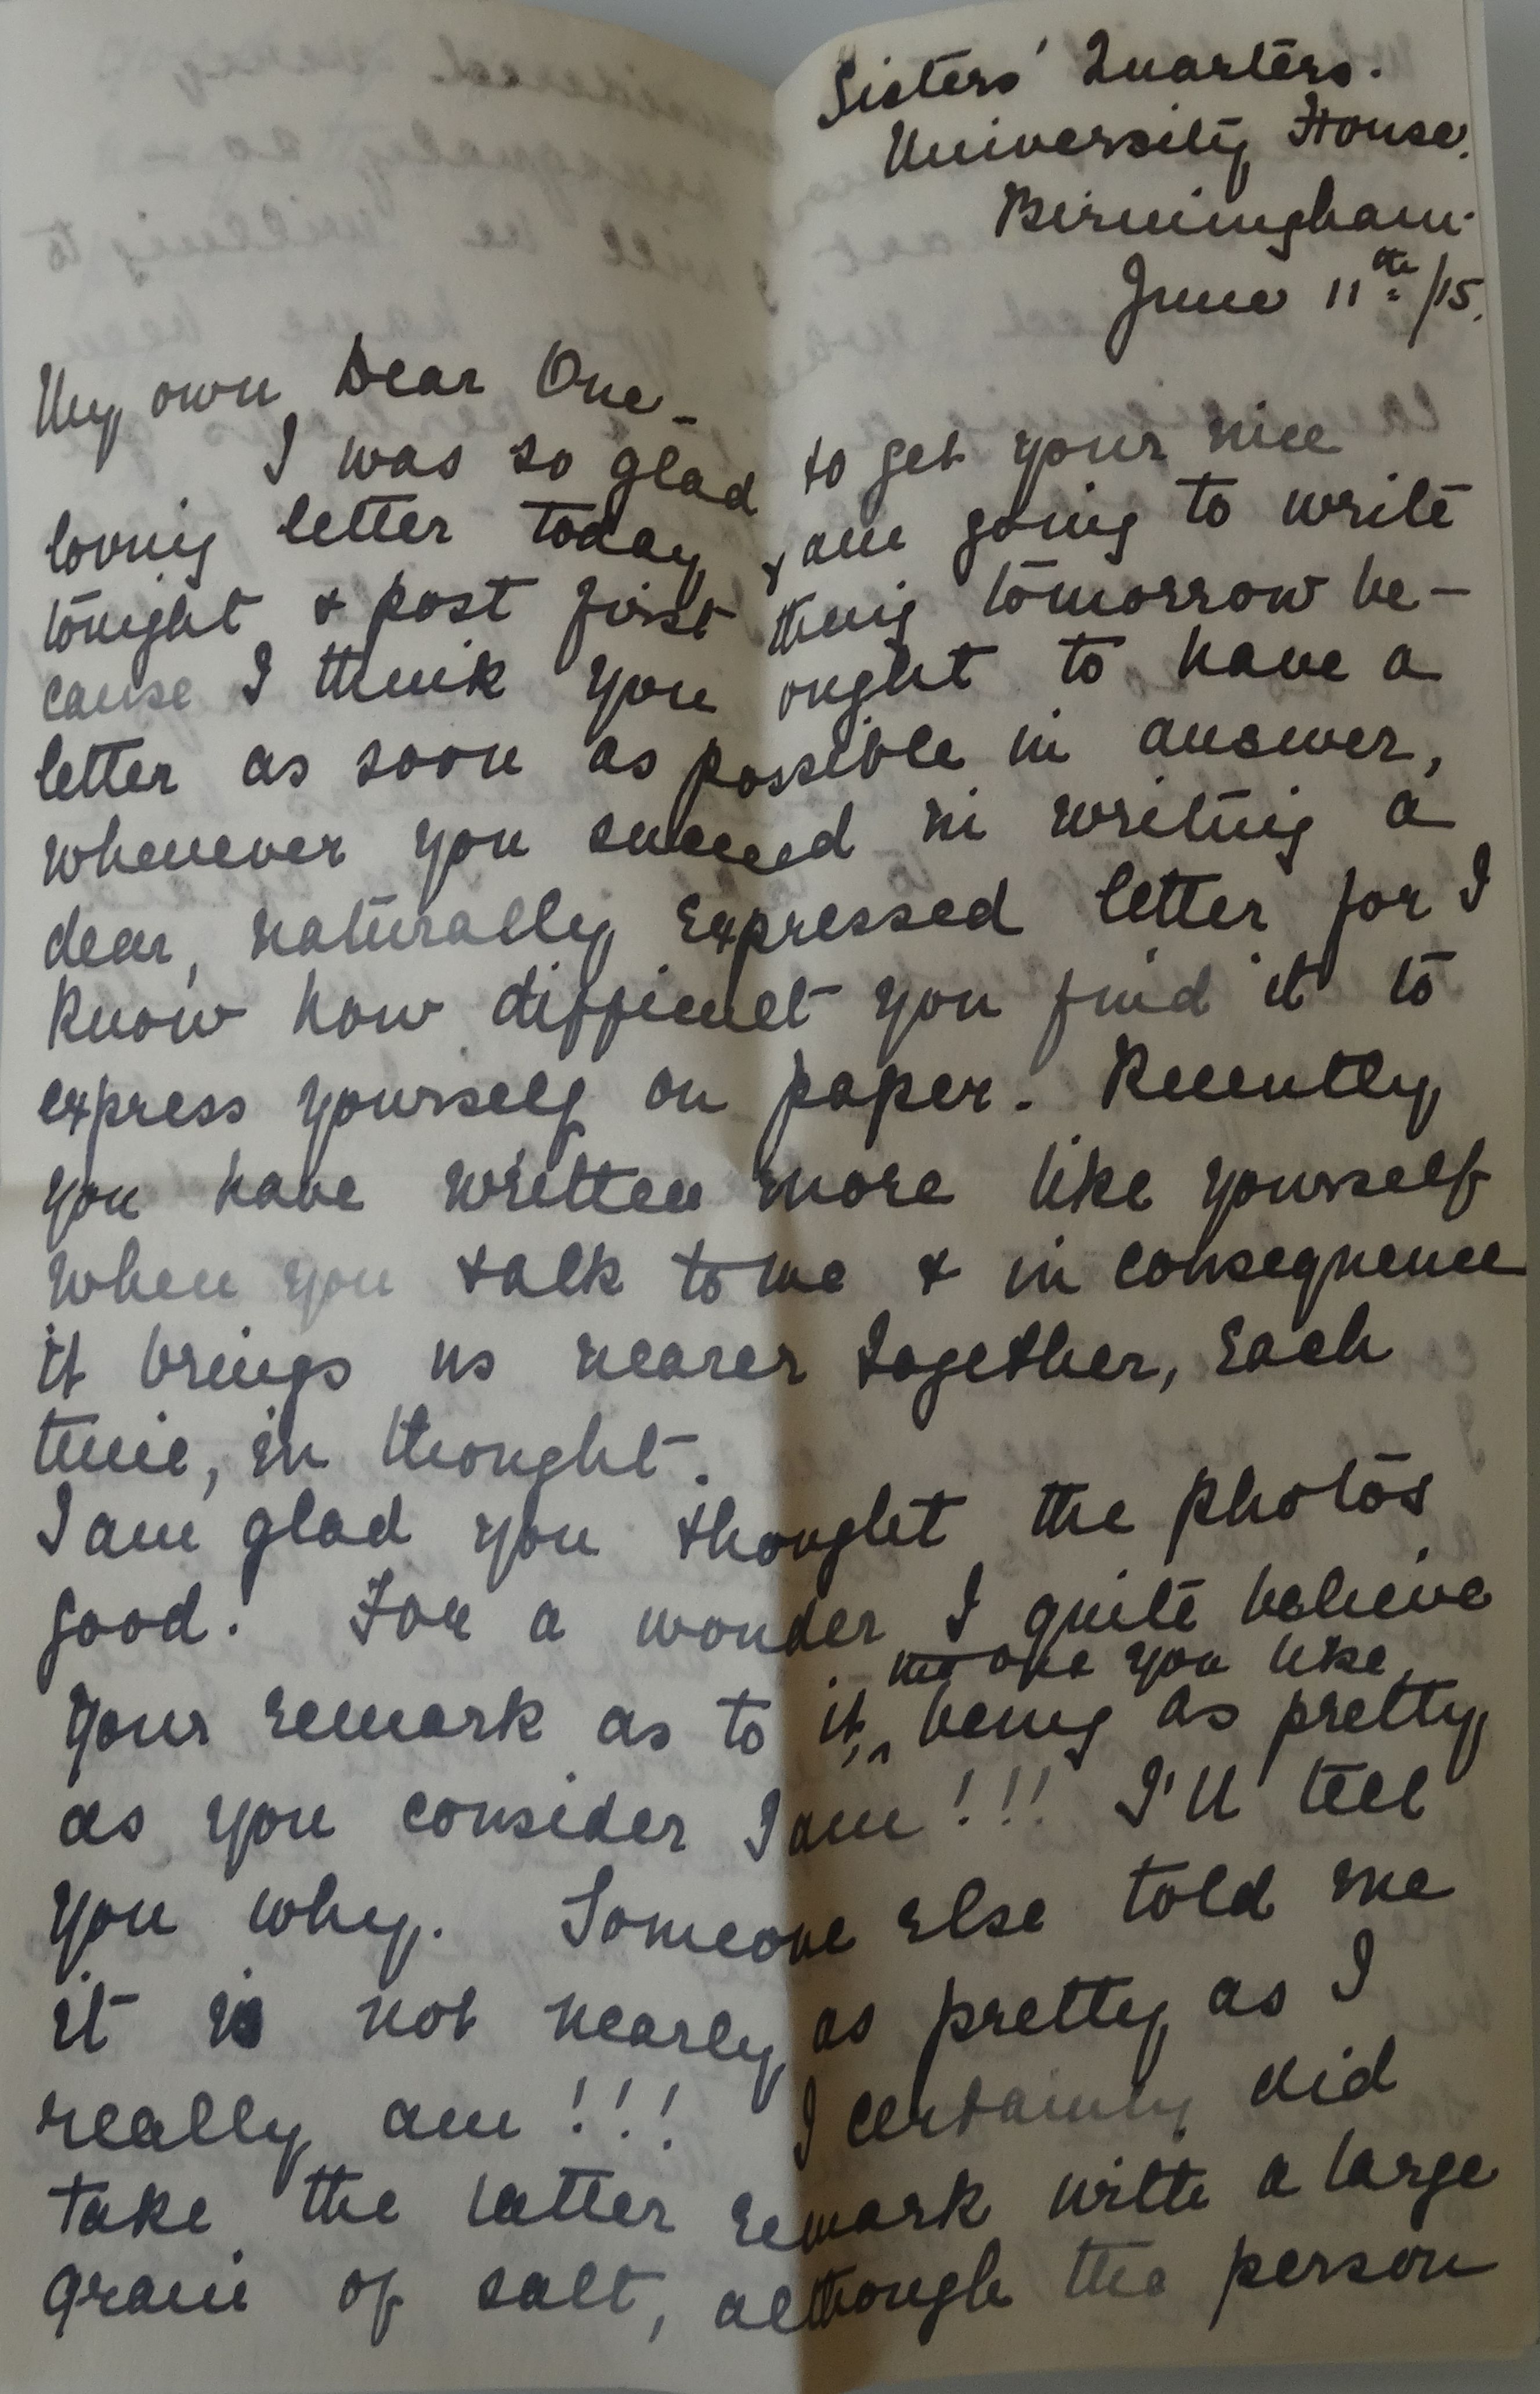 Sisters' Quarters.
University House.
Birmingham.
June 11th /15.
My own Dear One -
I was so glad to get your nice
loving letter today & am going to write
tonight & post first thing tomorrow be-
cause I think you ought to have a
letter as soon as possible in answer,
whenever you succeed in writing a
dear, naturally expressed letter for I
know how difficult you find it to
express yourself on paper. Recently
you have written more like yourself
when you talk to me & in consequence
it brings us nearer together, each
time, in thought.
I am glad you thought the photos
good. For a wonder I quite believe
the one you like
your remark as to it, ^ being as pretty
as you consider I am!!! I'll tell
you why. Someone else told me
it is not nearly as pretty as I
really am!!! I certainly did
take the latter remark with a large
grain of salt, although the person